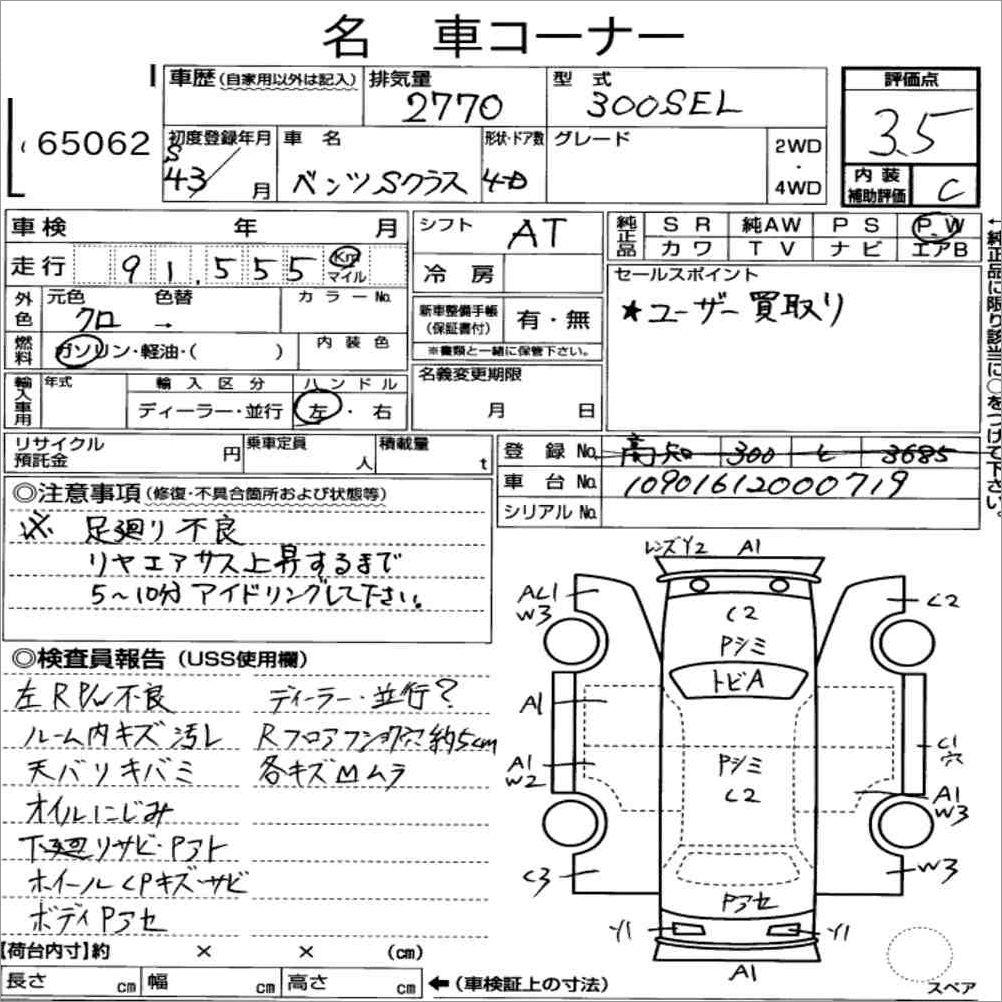 名 車コーナー
65062
車歴 (自家用以外は記入)
排気量
2770
型 式
300SEL
評価点
3.5
初度登録年月
S
43/ 月
車 名
ベンツ Sクラス
形状・ドア数
4-D
グレード
2WD
・
4WD
内 装
補助評価
C
車検 年 月
走行 91,555 Km
マイル
シフト
AT
冷 房
純正品
SR 純AW PS P.W
カワ TV ナビ エアB
←純正品に限り該当に○をつけて下さい。
セールスポイント
★ユーザー買取り
外色
元色 色替
クロ →
カラーNo.
燃料
ガソリン・軽油・( )
内 装 色
新車整備手帳
(保証書付)
有・無
※書類と一緒に保管下さい。
輸入車用
年式
輸 入 区 分
ディーラー・並行
ハ ン ド ル
左・右
名義変更期限
月 日
リサイクル
預託金
円
乗車定員
人
積載量
t
登 録 No. 高知 300 と 3685
車 台 No. 10901612000719
シリアル No.
◎注意事項 (修復・不具合箇所および状態等)
※ 足廻り不良
リヤエアサス上昇するまで
5〜10分アイドリングして下さい。
◎検査員報告 (USS使用欄)
左RP/W不良
ディーラー・並行?
ルーム内キズ汚レ
Rフロアフション穴約5cm
天バリキバミ
各キズMムラ
オイルにじみ
下廻リサビ・Pアト
ホイールCPキズ・サビ
ボディPアセ
レンズY2 A1
AL1
W3
C2
C2
Pシミ
トビA
A1
A1
W2
Pシミ
C2
C1
穴
A1
W3
C3
W3
Pアセ
Y1
Y1
A1
スペア
【荷台内寸】約 × × (cm)
長さ cm 幅 cm 高さ cm ←(車検証上の寸法)